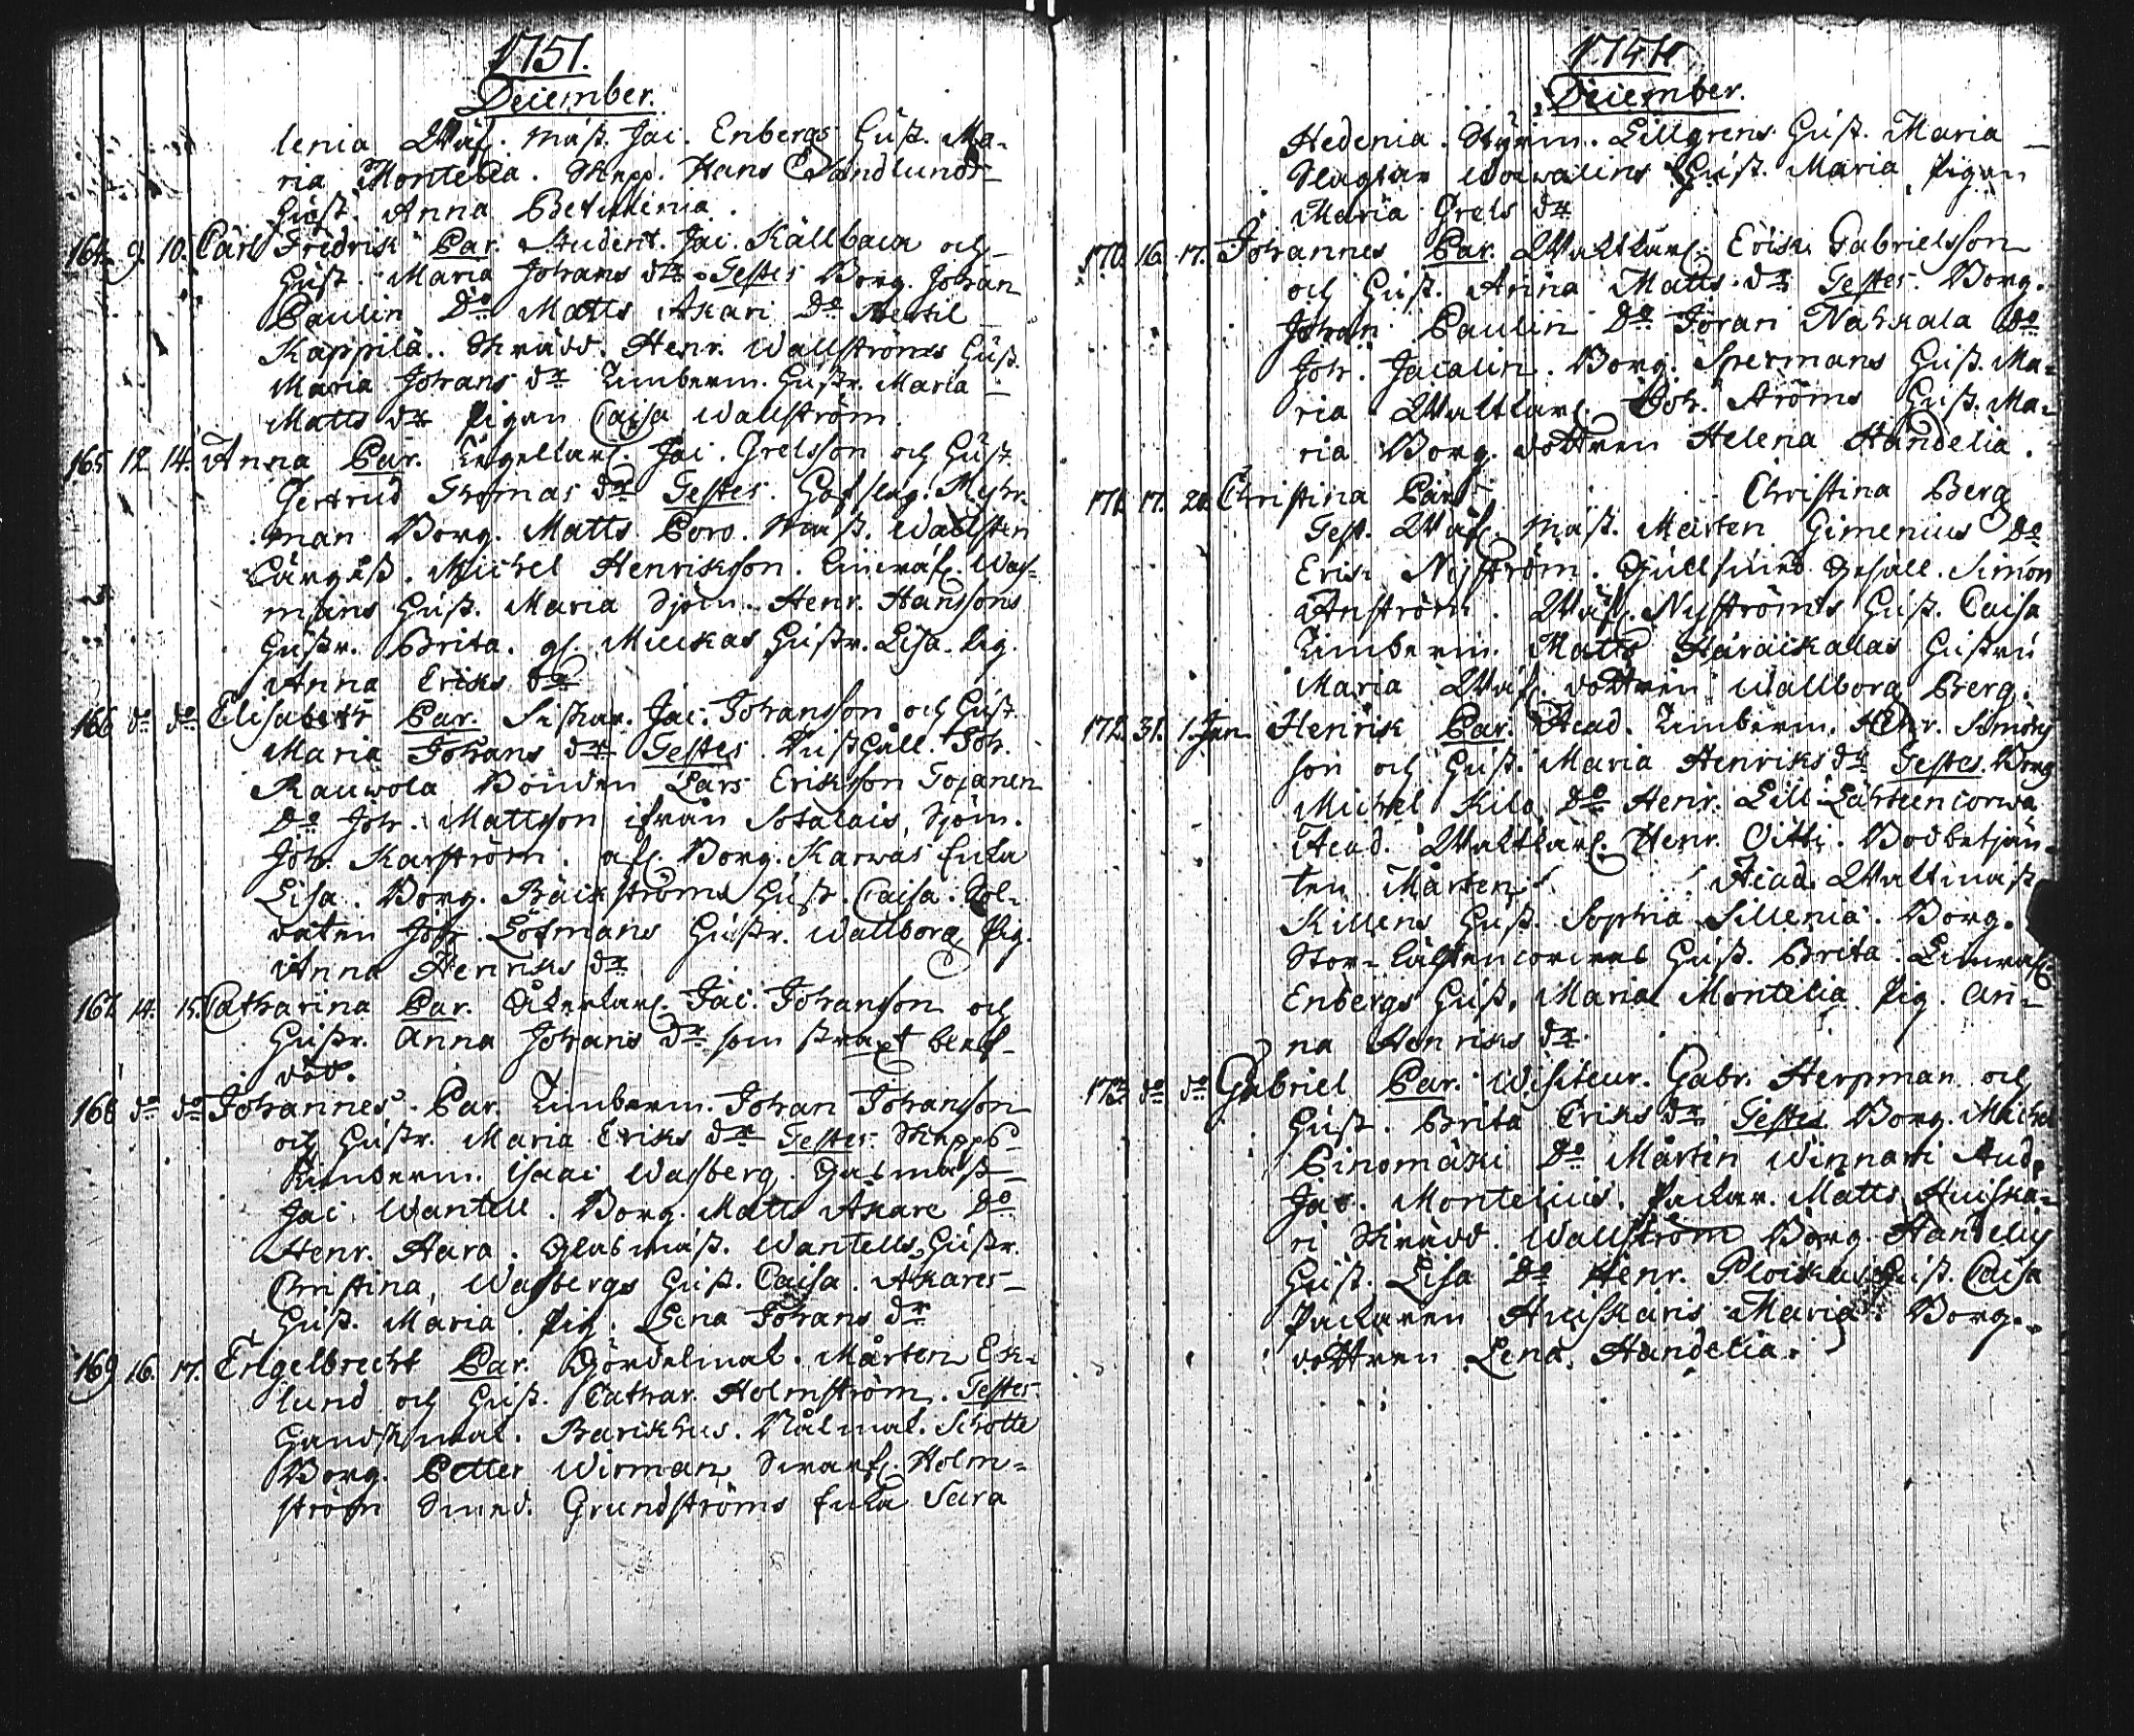 1751.
December.
lenia Wäf. mäst. Jac. Enbergs Hust. Ma-
ria Montelia. Skepp. Hans Sandlunds
Hust. Anna Bethulinia.
164. 9. 10. Carl Fredrik Par. Student. Jac. Källback och
Hust. Maria Johans dr Testes Borg. Johan
Paulin Do Matts Akari Do Bertil
Kappilä. Skrädd. Henr. Wallströms Hust.
Maria Johans dr Timberm. Hustr. Maria
Matts dr Pigan Caisa Wallström
165 12 14. Anna Par. Tegelkarl. Jac. Grelsson och Hust.
Gertrud Thomas dr Testes. Hofslag. Myhr-
man Borg. Matts Poro. Wallsten
Michel Henriksson.
mans Hust. Maria Sjöm. Henr. Hanssons
Hustr. Brita. Muckas Hustr. Lisa. Pig.
Anna Eriks dr
166 do do Elisabeth Par. Jac. Johansson och Hust.
Maria Johans dr Testes Joh.
Kauwola Bonden Lars Eriksson Tojanen
Do Joh. Mattsson ifrån Sotalais, Sjöm.
Joh. Karström. afl. Borg. Karwas Enka
Lisa. Borg. Bäckströms Hust. Caisa. Sol-
daten Joh. Löfmans Hustr. Wallborg, Pig.
Anna Henriks dr
167 14. 15. Catharina Par. Åkerkarl. Jac. Johansson och
Hustr. Anna Johans dr som straxt blef
död.
168 do do Johannes. Par. Timberm. Johan Johansson
och Hustr. Maria Eriks dr Testes. Skepps
Timberm. Isaac Wasberg. Glasmäst
Jac. Wantell. Borg. Matts Akare Do
Henr. Hara. Glasmäst. Wantells Hustr.
Christina, Wasbergs Hust. Caisa. Akares
Hust. Maria. Pig. Lena Johans dr
169 16. 17. Engelbrecht Par. Gördelmak. Mårten Ek-
lund och Hust. Cathar. Holmström. Testes
Handskmak. Barckhus. Nålmak. Schotte
Borg. Petter Wirman, Swarf. Holm-
ström Smed. Grundströms Enka Sara
December.
Hedenia. Styrm. Lillgrens Hust. Maria
Slagtar Hust. Maria Pigan
Maria Grels dr
170. 16. 17. Johannes Par. Waktkarl. Erik Gabrielsson
och Hust. Anna Matts dr Testes. Borg.
Johan Paulin Do Jöran Nahkala Do
Joh. Jacalin. Borg. Spermans Hust. Ma-
ria Waktkarl. Joh. Ströms Hust. Ma-
ria Borg. dottren Helena Handelia.
171. 17. 20. Christina Par. Christina Berg
Test. Wäf. mäst. Mårten Gimenius Do
Erik Nyström. Guldsmed Gesäll. Simon
Anström. Wäf. Nyströms Hust. Caisa
Timberm. Matts Haraikalas Hustru
Maria Wäf. dottren Wallborg Berg.
172. 31. 1. Jan. Henrik Par. Acad. Timberm. Henr. Simons
son och Hust. Maria Henriks dr Testes Borg
Michel Kilo Do Henr. Lill Lähteencorwa
Acad. Waktkarl. Henr. Oitti. Bodbetjän-
ten Mårten Acad. Waktmäst
Killens Hust. Sophia Sillenia. Borg.
Stor- Hust. Brita. Linwäf.
Enbergs Hust. Maria Montelia Pig. An-
na Henriks dr
173 do do Gabriel Par. Visiteur. Gabr. Herpman och
Hust. Brita Eriks dr Testes Borg. Michel
Pinomäki Do Mårtin Winnari Stud.
Jac. Montelius. Packar. Matts Huiska-
ri Skrädd. Wallström Borg. Handelii
Hust. Lisa Do Henr. Hust. Caisa
Packaren Huiskaris Maria. Borg.
dottren Lena Handelia.